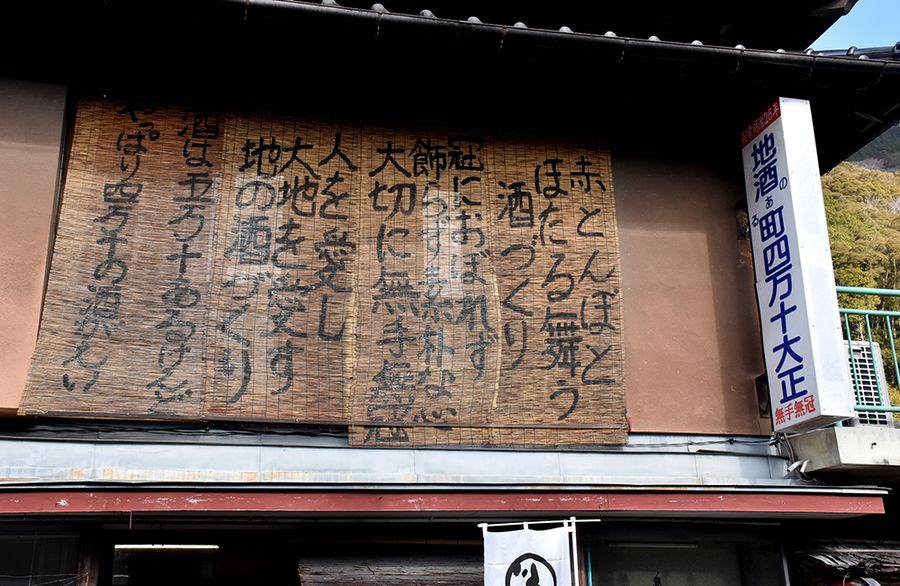 赤とんぼと
ほたる舞う
酒づくり
冠におぼれず
飾らず素朴な心
大切に無手無冠
人を愛し
大地を愛す
地の酒づくり
酒は五万十あるけど
やっぱり四万十の酒がえい
創業明治26年
地酒のある町四万十大正
無手無冠